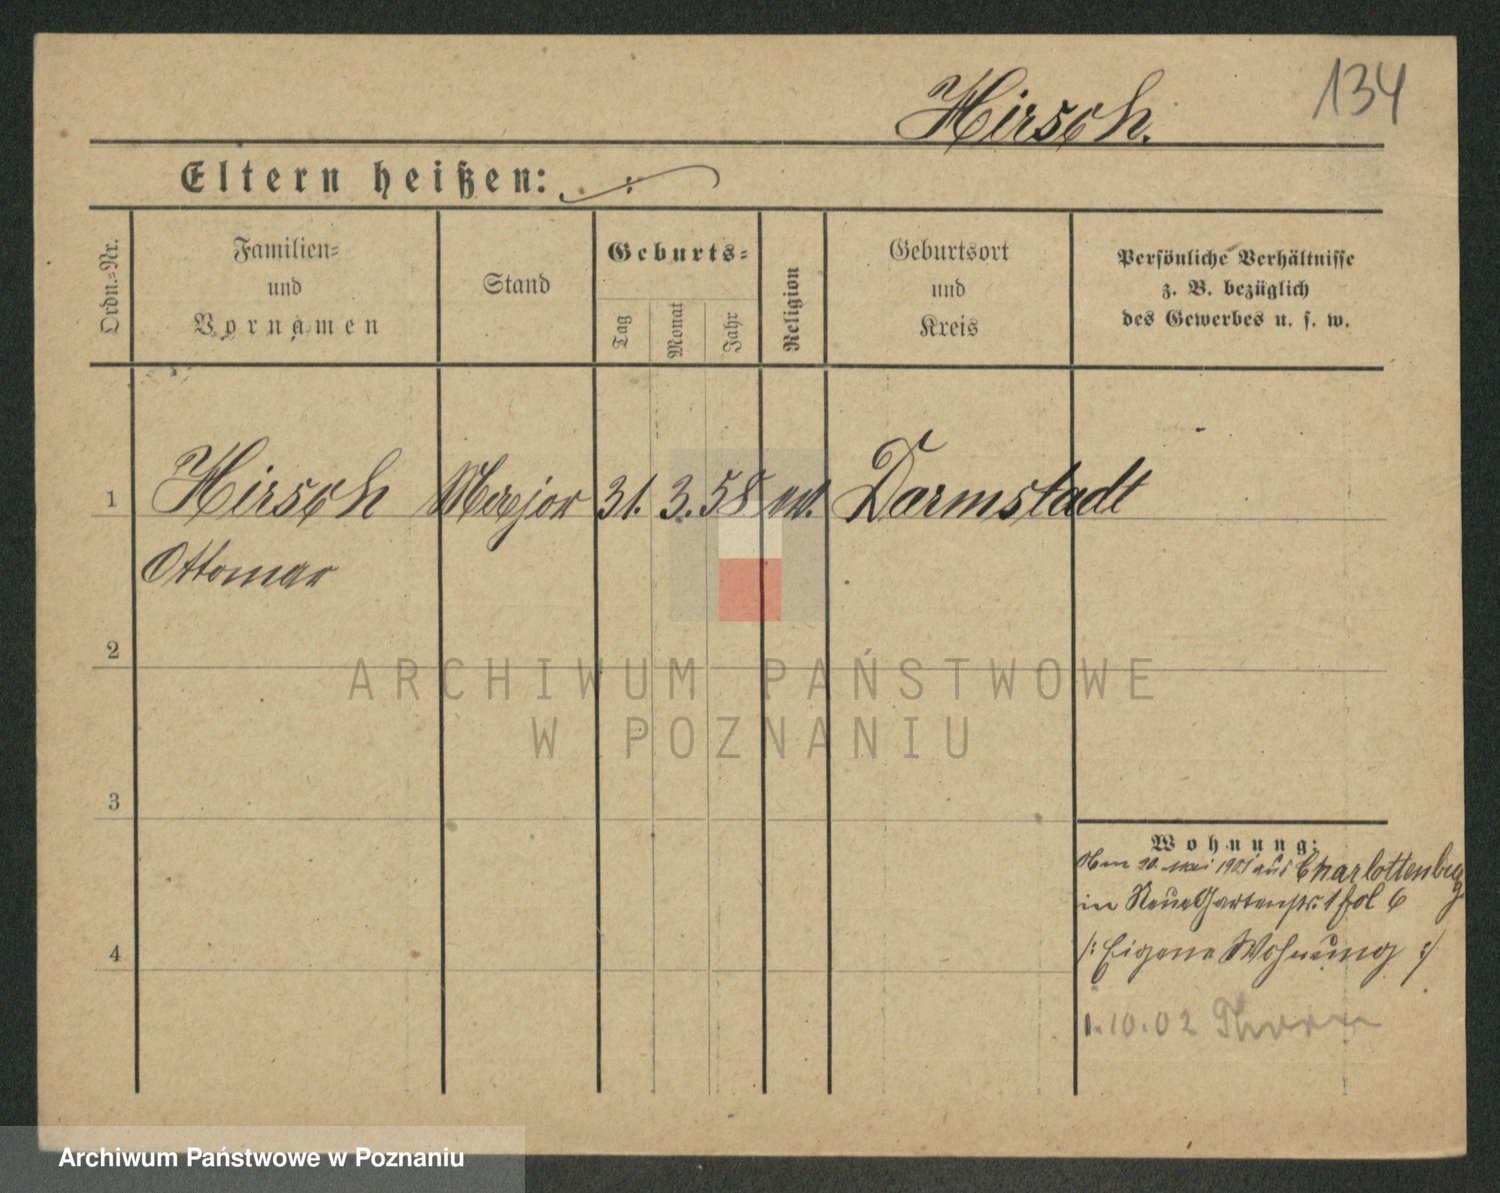 134
Hirsch.
Eltern heißen: ./.
Ordn.-Nr.
Familien-
und
Vornamen
Stand
Geburts-
Tag
Monat
Jahr
Religion
Geburtsort
und
Kreis
Persönliche Verhältnisse
z. B. bezüglich
des Gewerbes u. s. w.
1 Hirsch Major 31. 3. 58. Darmstadt
Ottomar
2
ARCHIWUM PAŃSTWOWE
W POZNANIU
3
Wohnung:
10. Mai 1901 aus Charlottenburg
in Neue Gartenstr. 1 fol 6
/: Eigene Wohnung :/
4
1.10.02 Thorn
Archiwum Państwowe w Poznaniu